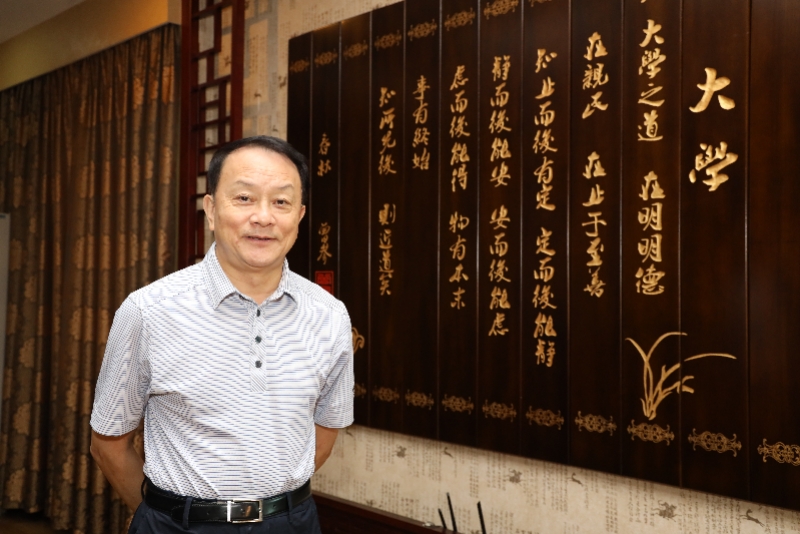 大學
大學之道 在明明德
在親民 在止于至善
知止而後有定 定而後能靜
靜而後能安 安而後能慮
慮而後能得 物有本末
事有終始
知所先後 則近道矣
春秋 曾參